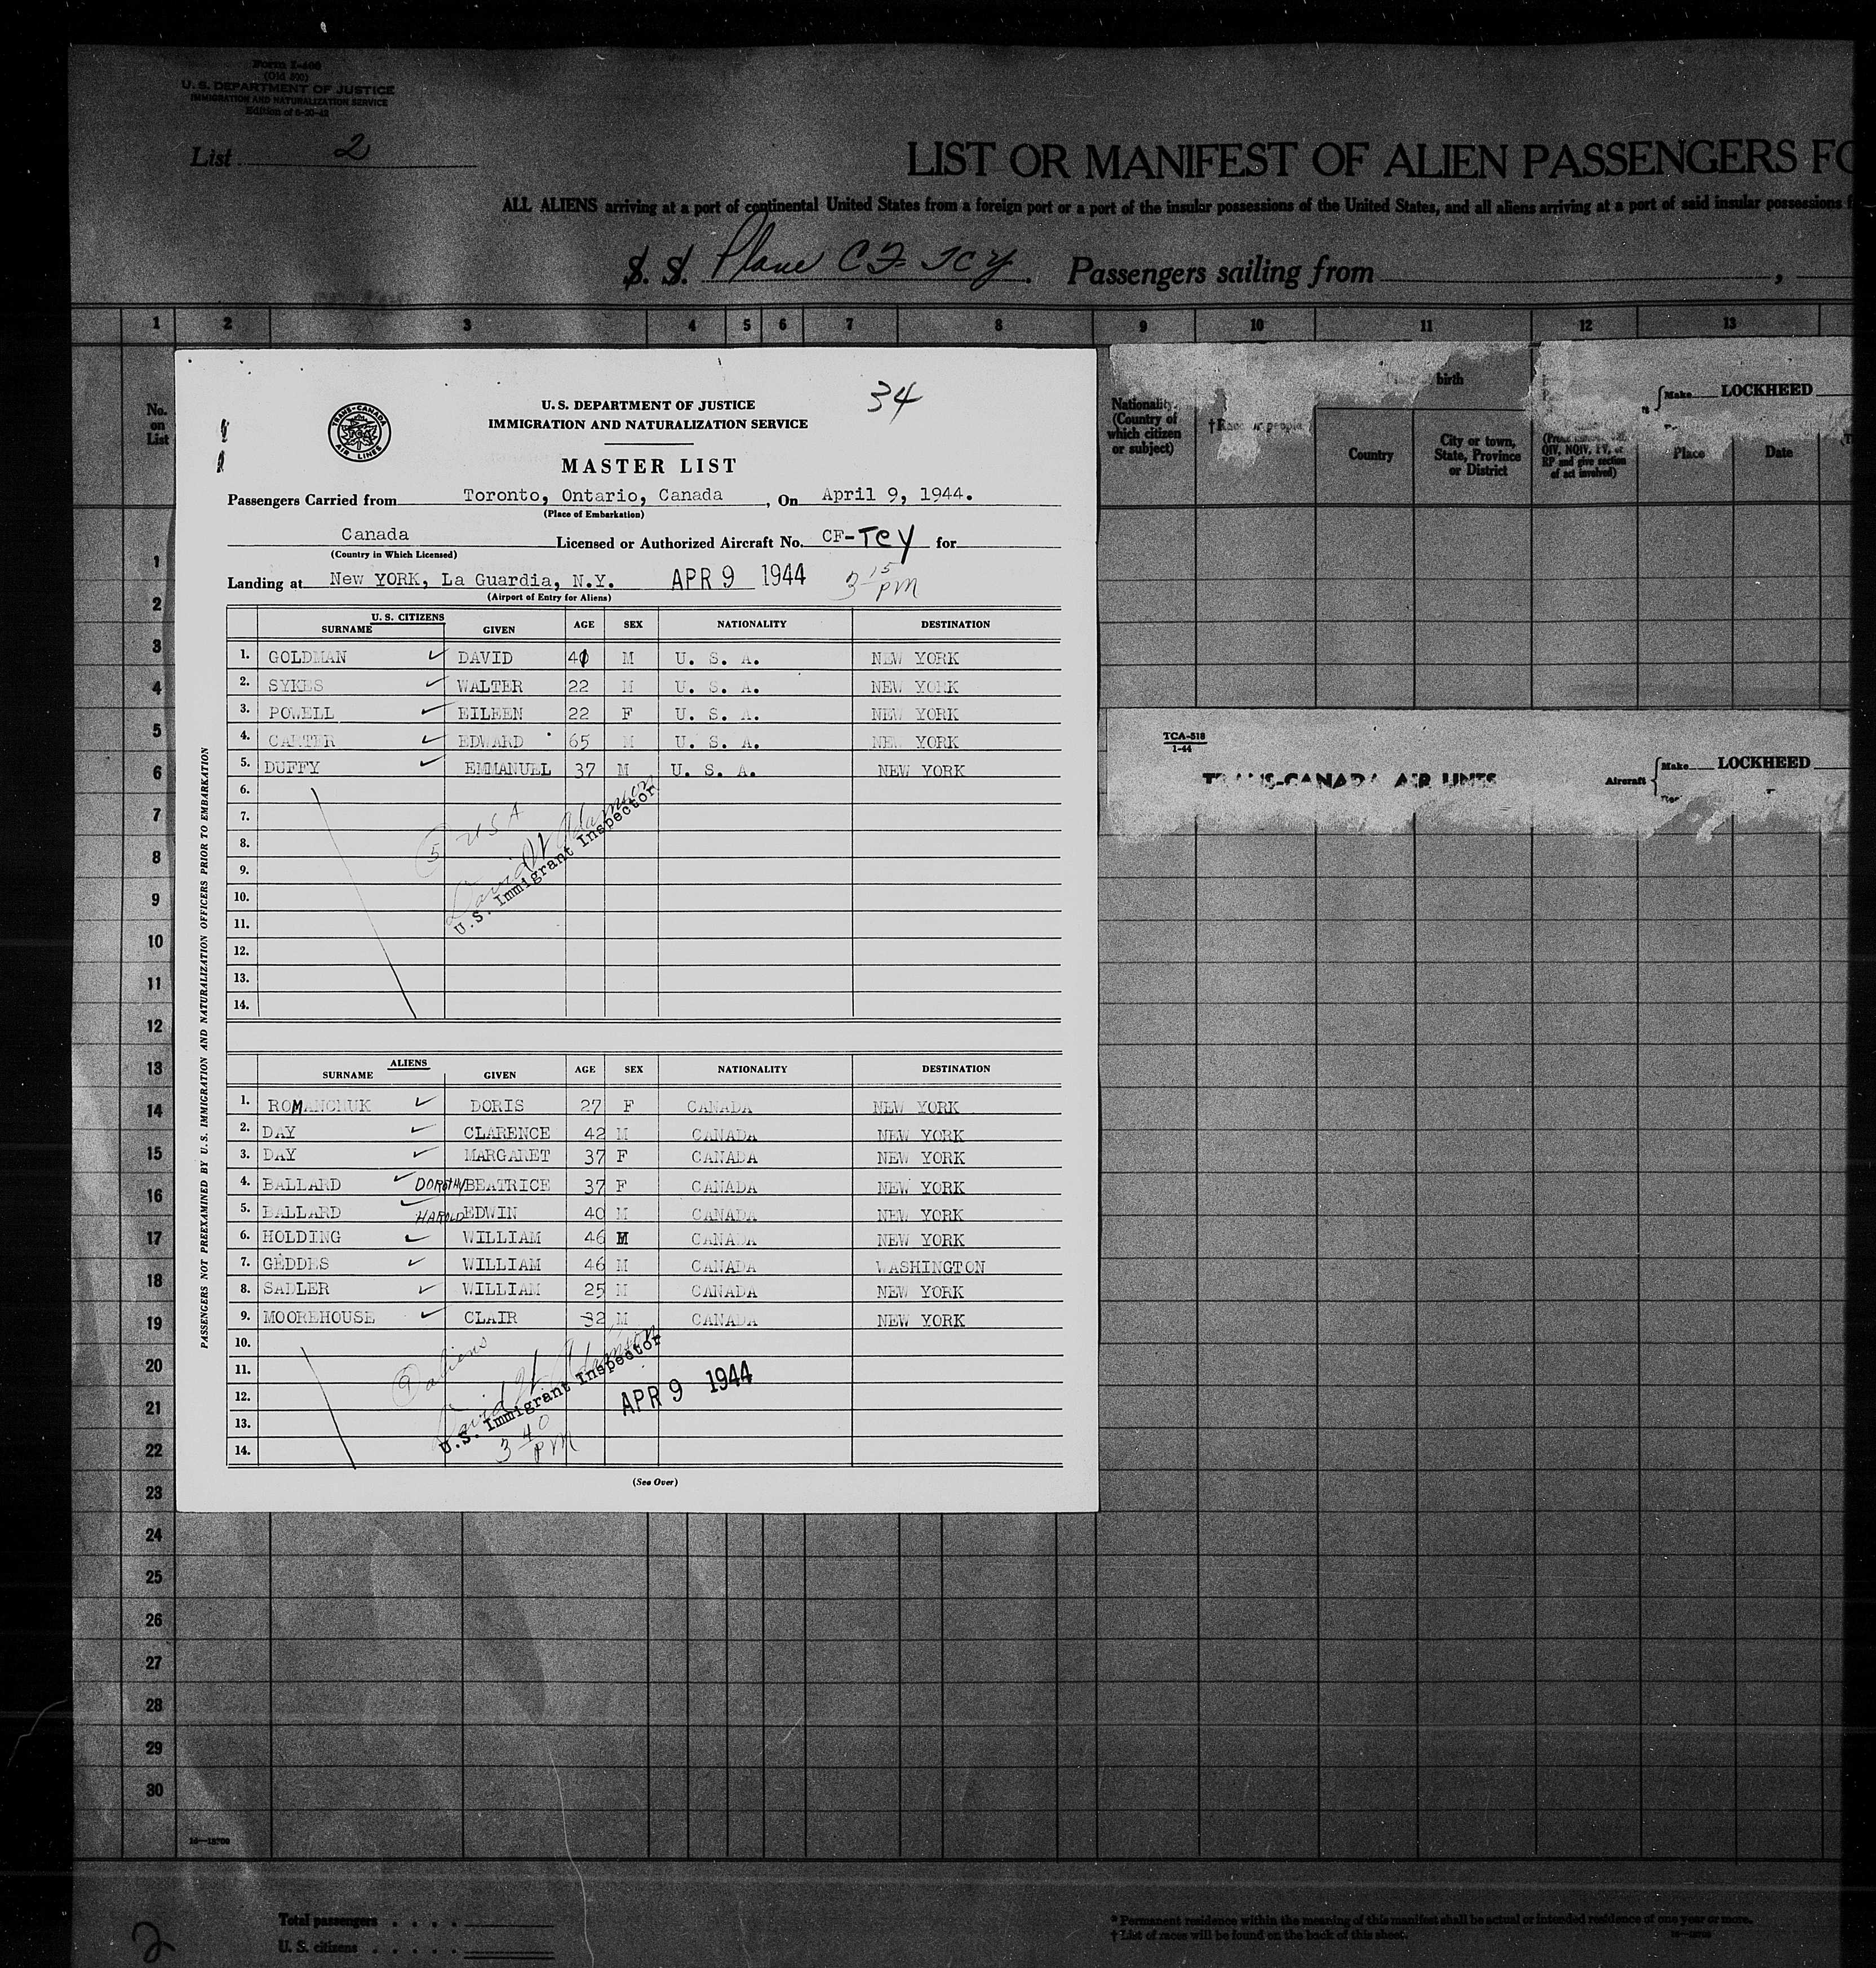 Form I-400
(Old 500)
U. S. DEPARTMENT OF JUSTICE
IMMIGRATION AND NATURALIZATION SERVICE
List 2
LIST OR MANIFEST OF ALIEN PASSENGERS FO
ALL ALIENS arriving at a port of continental United States from a foreign port or a port of the insular possessions of the United States, and all aliens arriving at a port of said insular possessions f
S. S. Plane CF-TCY. Passengers sailing from ,
1 2 3 4 5 6 7 8 9 10 11 12 13
No. on List
Nationality. (Country of which citizen or subject)
†Race or people
birth
Country
City or town, State, Province or District
QIV, NQIV, PV, or RP and give section of act involved)
Place
Date
Make LOCKHEED
34
TRANS-CANADA AIR LINES
U. S. DEPARTMENT OF JUSTICE
IMMIGRATION AND NATURALIZATION SERVICE
MASTER LIST
Passengers Carried from Toronto, Ontario, Canada, On April 9, 1944.
(Place of Embarkation)
Canada Licensed or Authorized Aircraft No. CF-TCY for
(Country in Which Licensed)
Landing at New YORK, La Guardia, N.Y. APR 9 1944 3 15 PM
(Airport of Entry for Aliens)
U. S. CITIZENS
SURNAME GIVEN AGE SEX NATIONALITY DESTINATION
1. GOLDMAN ✓ DAVID 41 M U. S. A. NEW YORK
2. SYKES ✓ WALTER 22 M U. S. A. NEW YORK
3. POWELL ✓ EILEEN 22 F U. S. A. NEW YORK
4. CARTER ✓ EDWARD 65 M U. S. A. NEW YORK
5. DUFFY ✓ EMMANUEL 37 M U. S. A. NEW YORK
6.
7.
8.
9.
10.
11.
12.
13.
14.
5 USA
David H Adamson
U.S. Immigrant Inspector
ALIENS
SURNAME GIVEN AGE SEX NATIONALITY DESTINATION
1. ROMANCHUK ✓ DORIS 27 F CANADA NEW YORK
2. DAY ✓ CLARENCE 42 M CANADA NEW YORK
3. DAY ✓ MARGARET 37 F CANADA NEW YORK
4. BALLARD ✓ DOROTHY BEATRICE 37 F CANADA NEW YORK
5. BALLARD ✓ HAROLD EDWIN 40 M CANADA NEW YORK
6. HOLDING ✓ WILLIAM 46 M CANADA NEW YORK
7. GEDDES ✓ WILLIAM 46 M CANADA WASHINGTON
8. SADLER ✓ WILLIAM 25 M CANADA NEW YORK
9. MOOREHOUSE ✓ CLAIR 32 M CANADA NEW YORK
10.
11.
12.
13.
14.
9 aliens
David H Adamson
U.S. Immigrant Inspector
APR 9 1944
3 40 PM
(See Over)
PASSENGERS NOT PREEXAMINED BY U. S. IMMIGRATION AND NATURALIZATION OFFICERS PRIOR TO EMBARKATION
TCA-518
1-44
TRANS-CANADA AIR LINES
Aircraft Make LOCKHEED
1
2
3
4
5
6
7
8
9
10
11
12
13
14
15
16
17
18
19
20
21
22
23
24
25
26
27
28
29
30
Total passengers . . . .
U. S. citizens . . . . .
2
* Permanent residence within the meaning of this manifest shall be actual or intended residence of one year or more.
† List of races will be found on the back of this sheet.